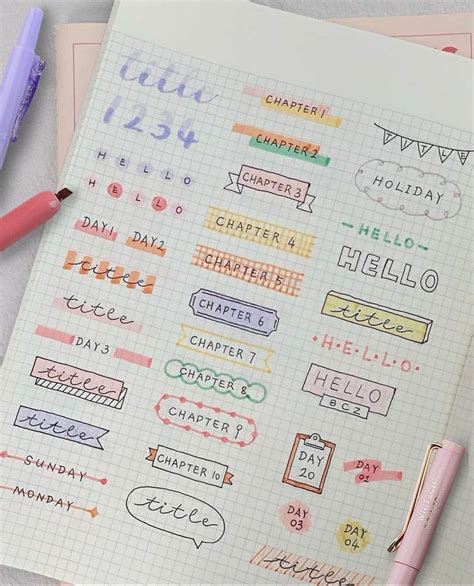 title
1 2 3 4
HELLO
HELLO
DAY1 DAY2
title
title
DAY3
title
title
SUNDAY
MONDAY
CHAPTER 1
CHAPTER 2
CHAPTER 3
CHAPTER 4
CHAPTER 5
CHAPTER 6
CHAPTER 7
CHAPTER 8
CHAPTER 9
CHAPTER 10
title
TITLE
HOLIDAY
-HELLO-
HELLO
title
·H·E·L·L·O·
HELLO
BCZ
DAY
20
DAY
01
DAY
03
DAY
04
title